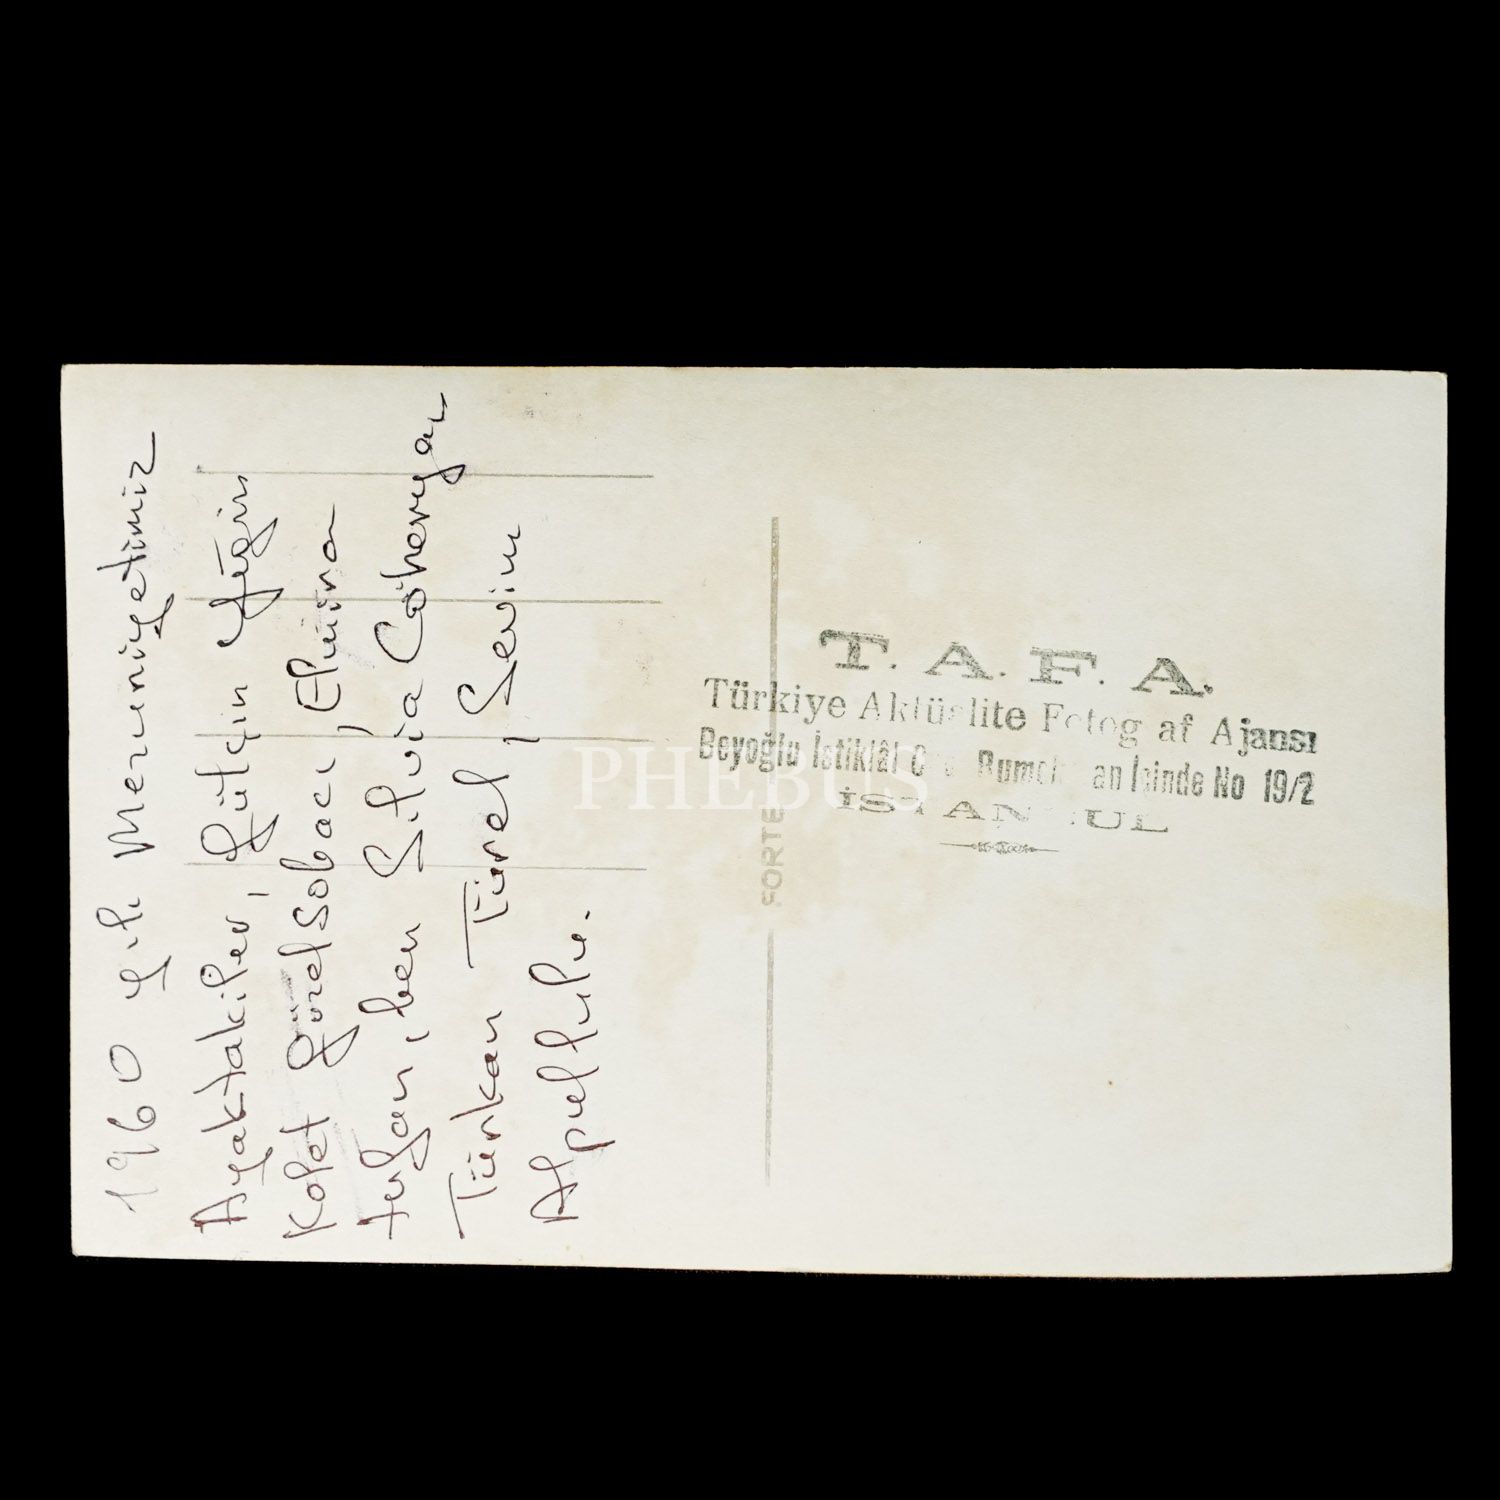 1960 yılı Mezuniyetimiz
Ayaktakiler, Gülçin
Kolet Güzelsobacı, Elmira
ben Silvia Cöheryan
Türkan Türel, Sevim
Alpullulu.
T. A. F. A.
Türkiye Aktüalite Fotoğraf Ajansı
Beyoğlu İstiklâl Rumeli an İçinde No 19/2
İSTANBUL
FORTE
PHEBUS